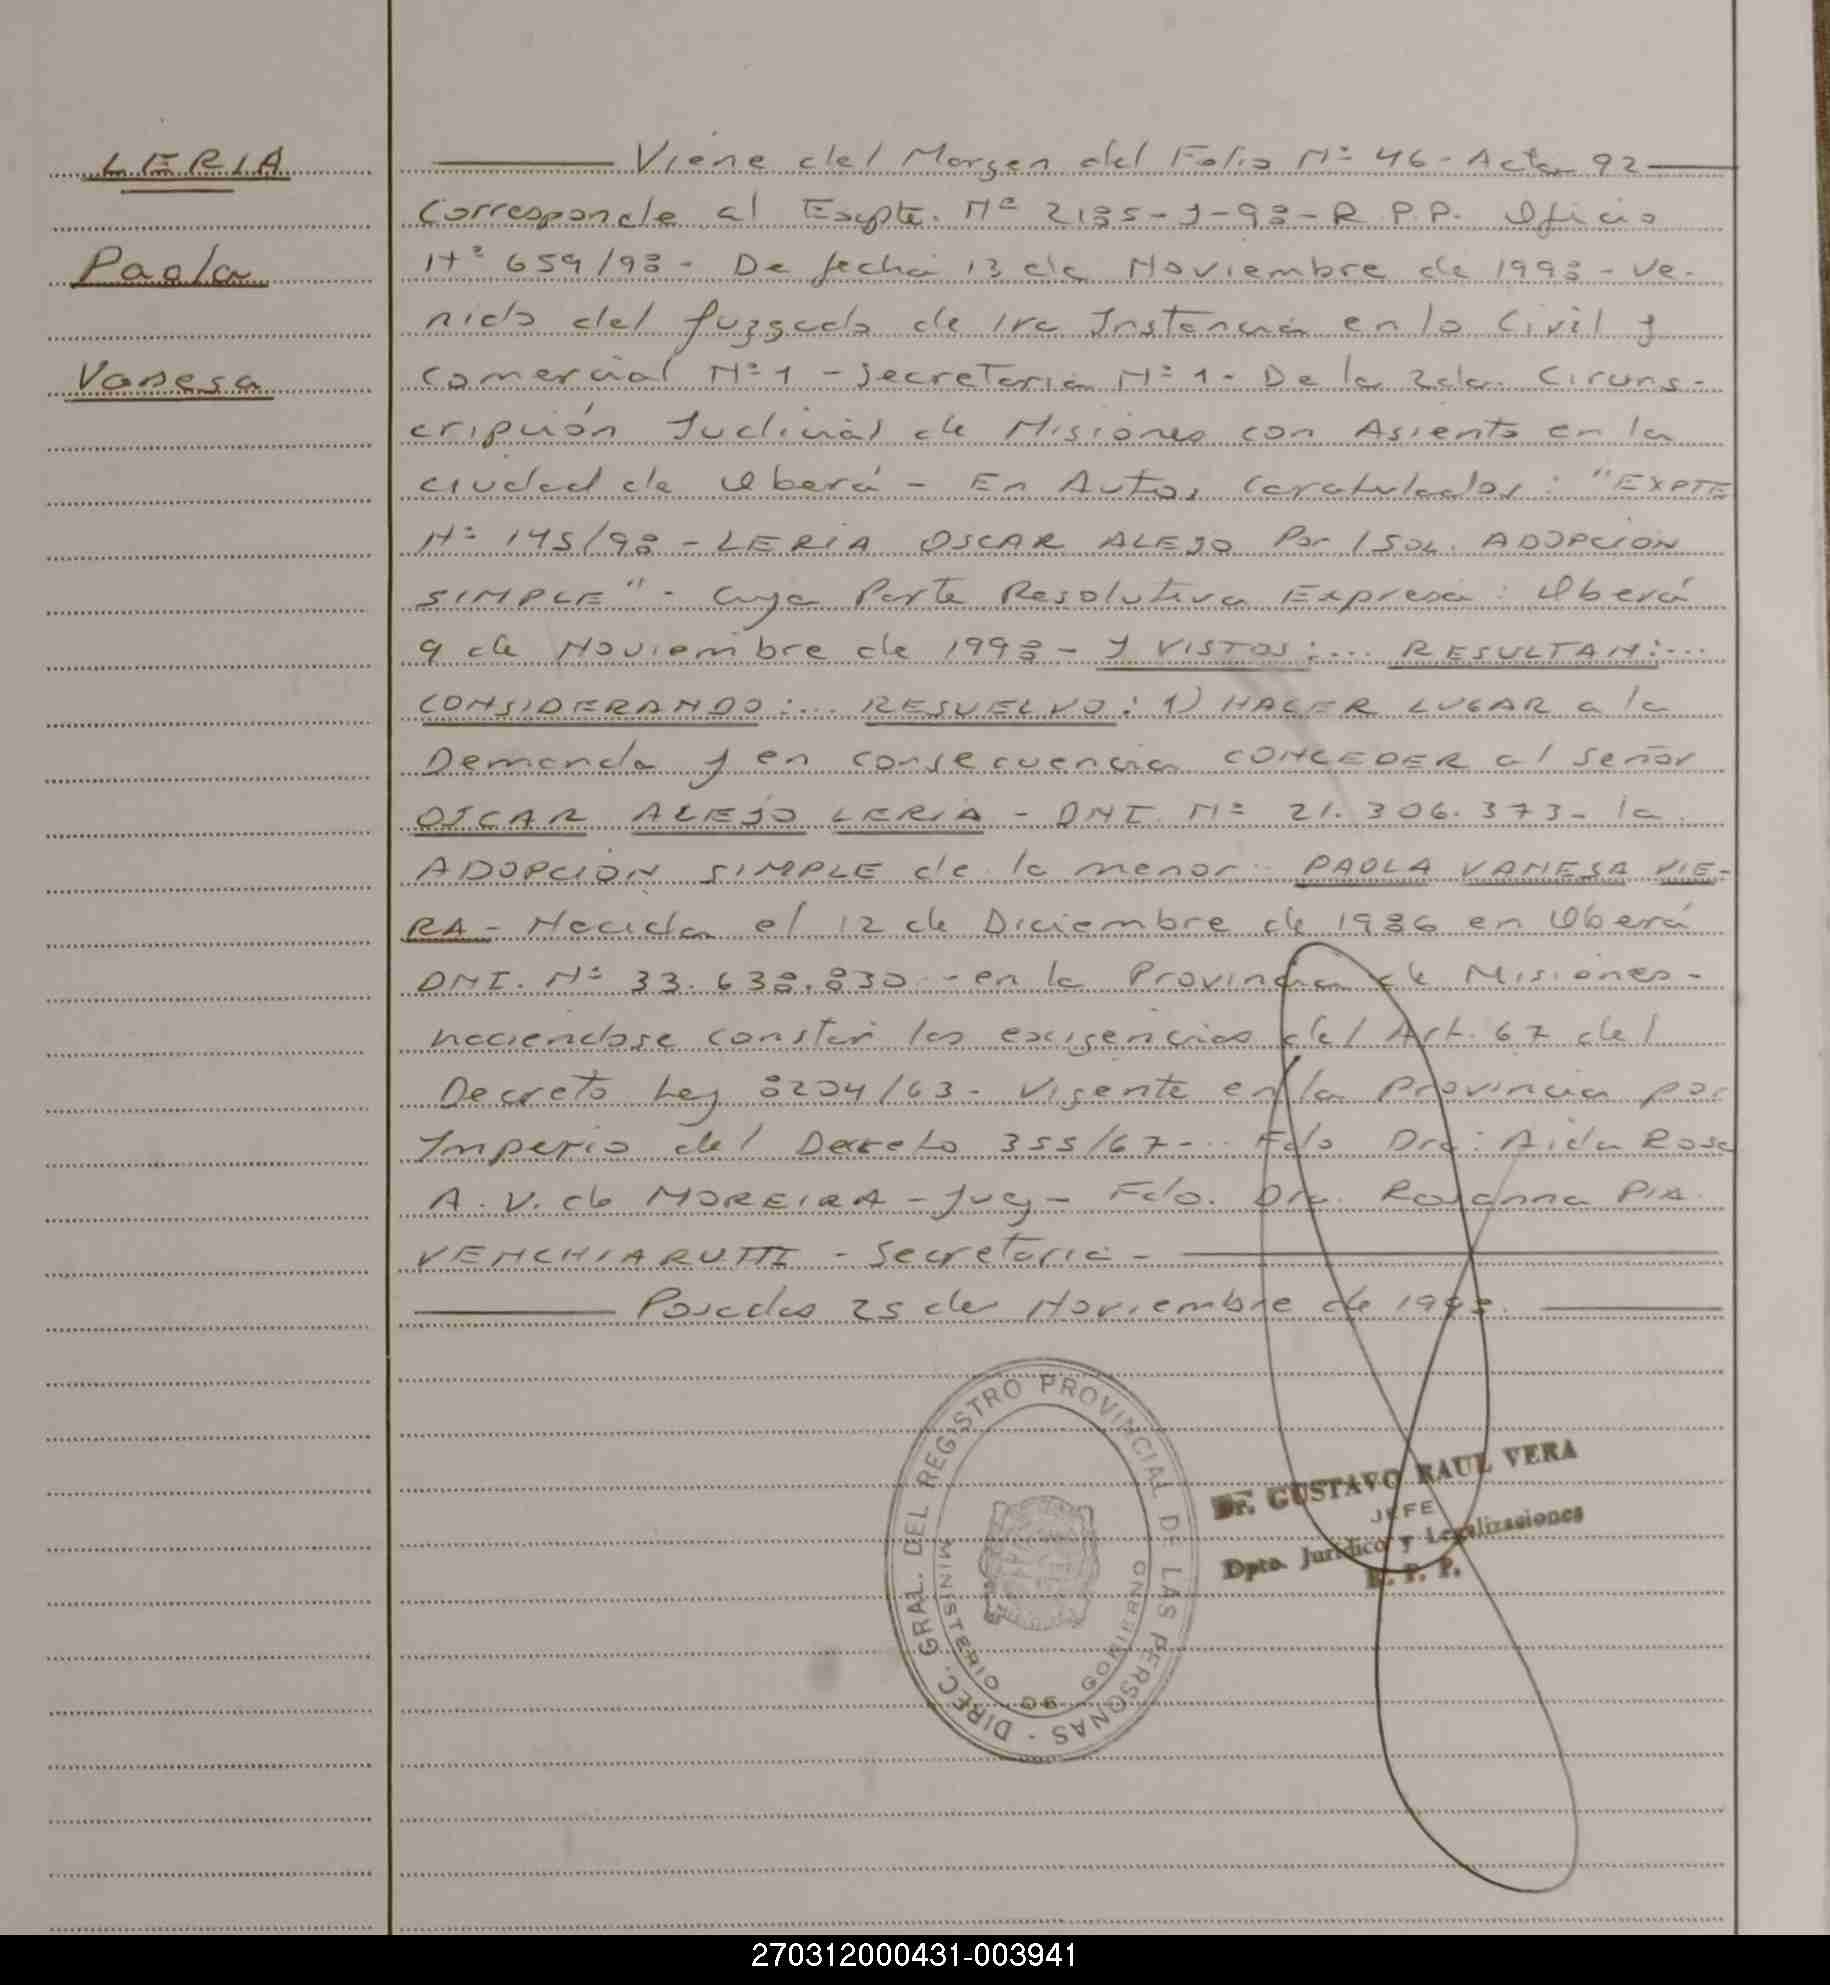 LERIA
Paola
Vanesa
Viene del Margen del Folio Nº 46 - Acta 92
Corresponde al Expte. Nº 2185-J-98-R.P.P. Oficio
Nº 659/98 - De fecha 13 de Noviembre de 1998 - Ve-
nido del Juzgado de 1ra Instancia en lo Civil y
Comercial Nº 1 - Secretaria Nº 1 - De la 2da. Circuns-
cripción Judicial de Misiones con Asiento en la
ciudad de Oberá - En Autos Caratulados: "EXPTE
Nº 145/98 - LERIA OSCAR ALEJO Por / SOL. ADOPCION
SIMPLE" - Cuya Parte Resolutiva Expresa: Oberá
9 de Noviembre de 1998 - Y VISTOS:... RESULTAN:...
CONSIDERANDO:... RESUELVO: 1) HACER LUGAR a la
Demanda y en consecuencia CONCEDER al Señor
OSCAR ALEJO LERIA - DNI. Nº 21.306.373 - la
ADOPCION SIMPLE de la menor PAOLA VANESA VIE-
RA - Nacida el 12 de Diciembre de 1986 en Oberá
DNI. Nº 33.638.830 - en la Provincia de Misiones -
haciendose constar las exigencias del Art. 67 del
Decreto Ley 8204/63 - Vigente en la Provincia por
Imperio del Decreto 355/67 - .. Fdo Dra: Aida Rosa
A. V. de MOREIRA - Juez - Fdo. Dra. Rosanna Pia
VENCHIARUTTI - Secretaria -
Posadas 25 de Noviembre de 1998.
DIREC. GRAL. DEL REGISTRO PROVINCIAL DE LAS PERSONAS -
MINISTERIO DE GOBIERNO
Dr. GUSTAVO RAUL VERA
JEFE
Dpto. Jurídico y Legalizaciones
R. P. P.
270312000431-003941